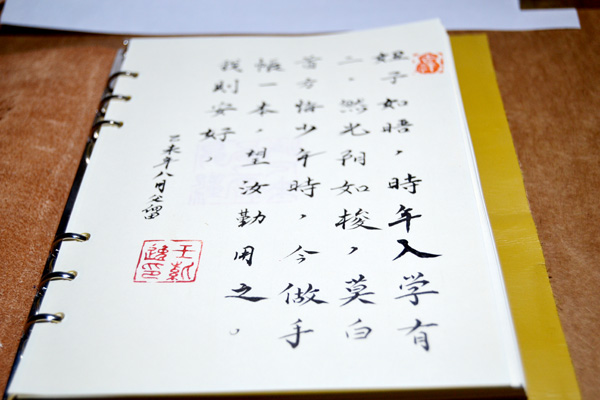 妞子如晤，時年入学有
二。然光阴如梭，莫白
首方悔少年時，今做手
帳一本，望汝勤用之。
我則安好。
乙未年八月父留